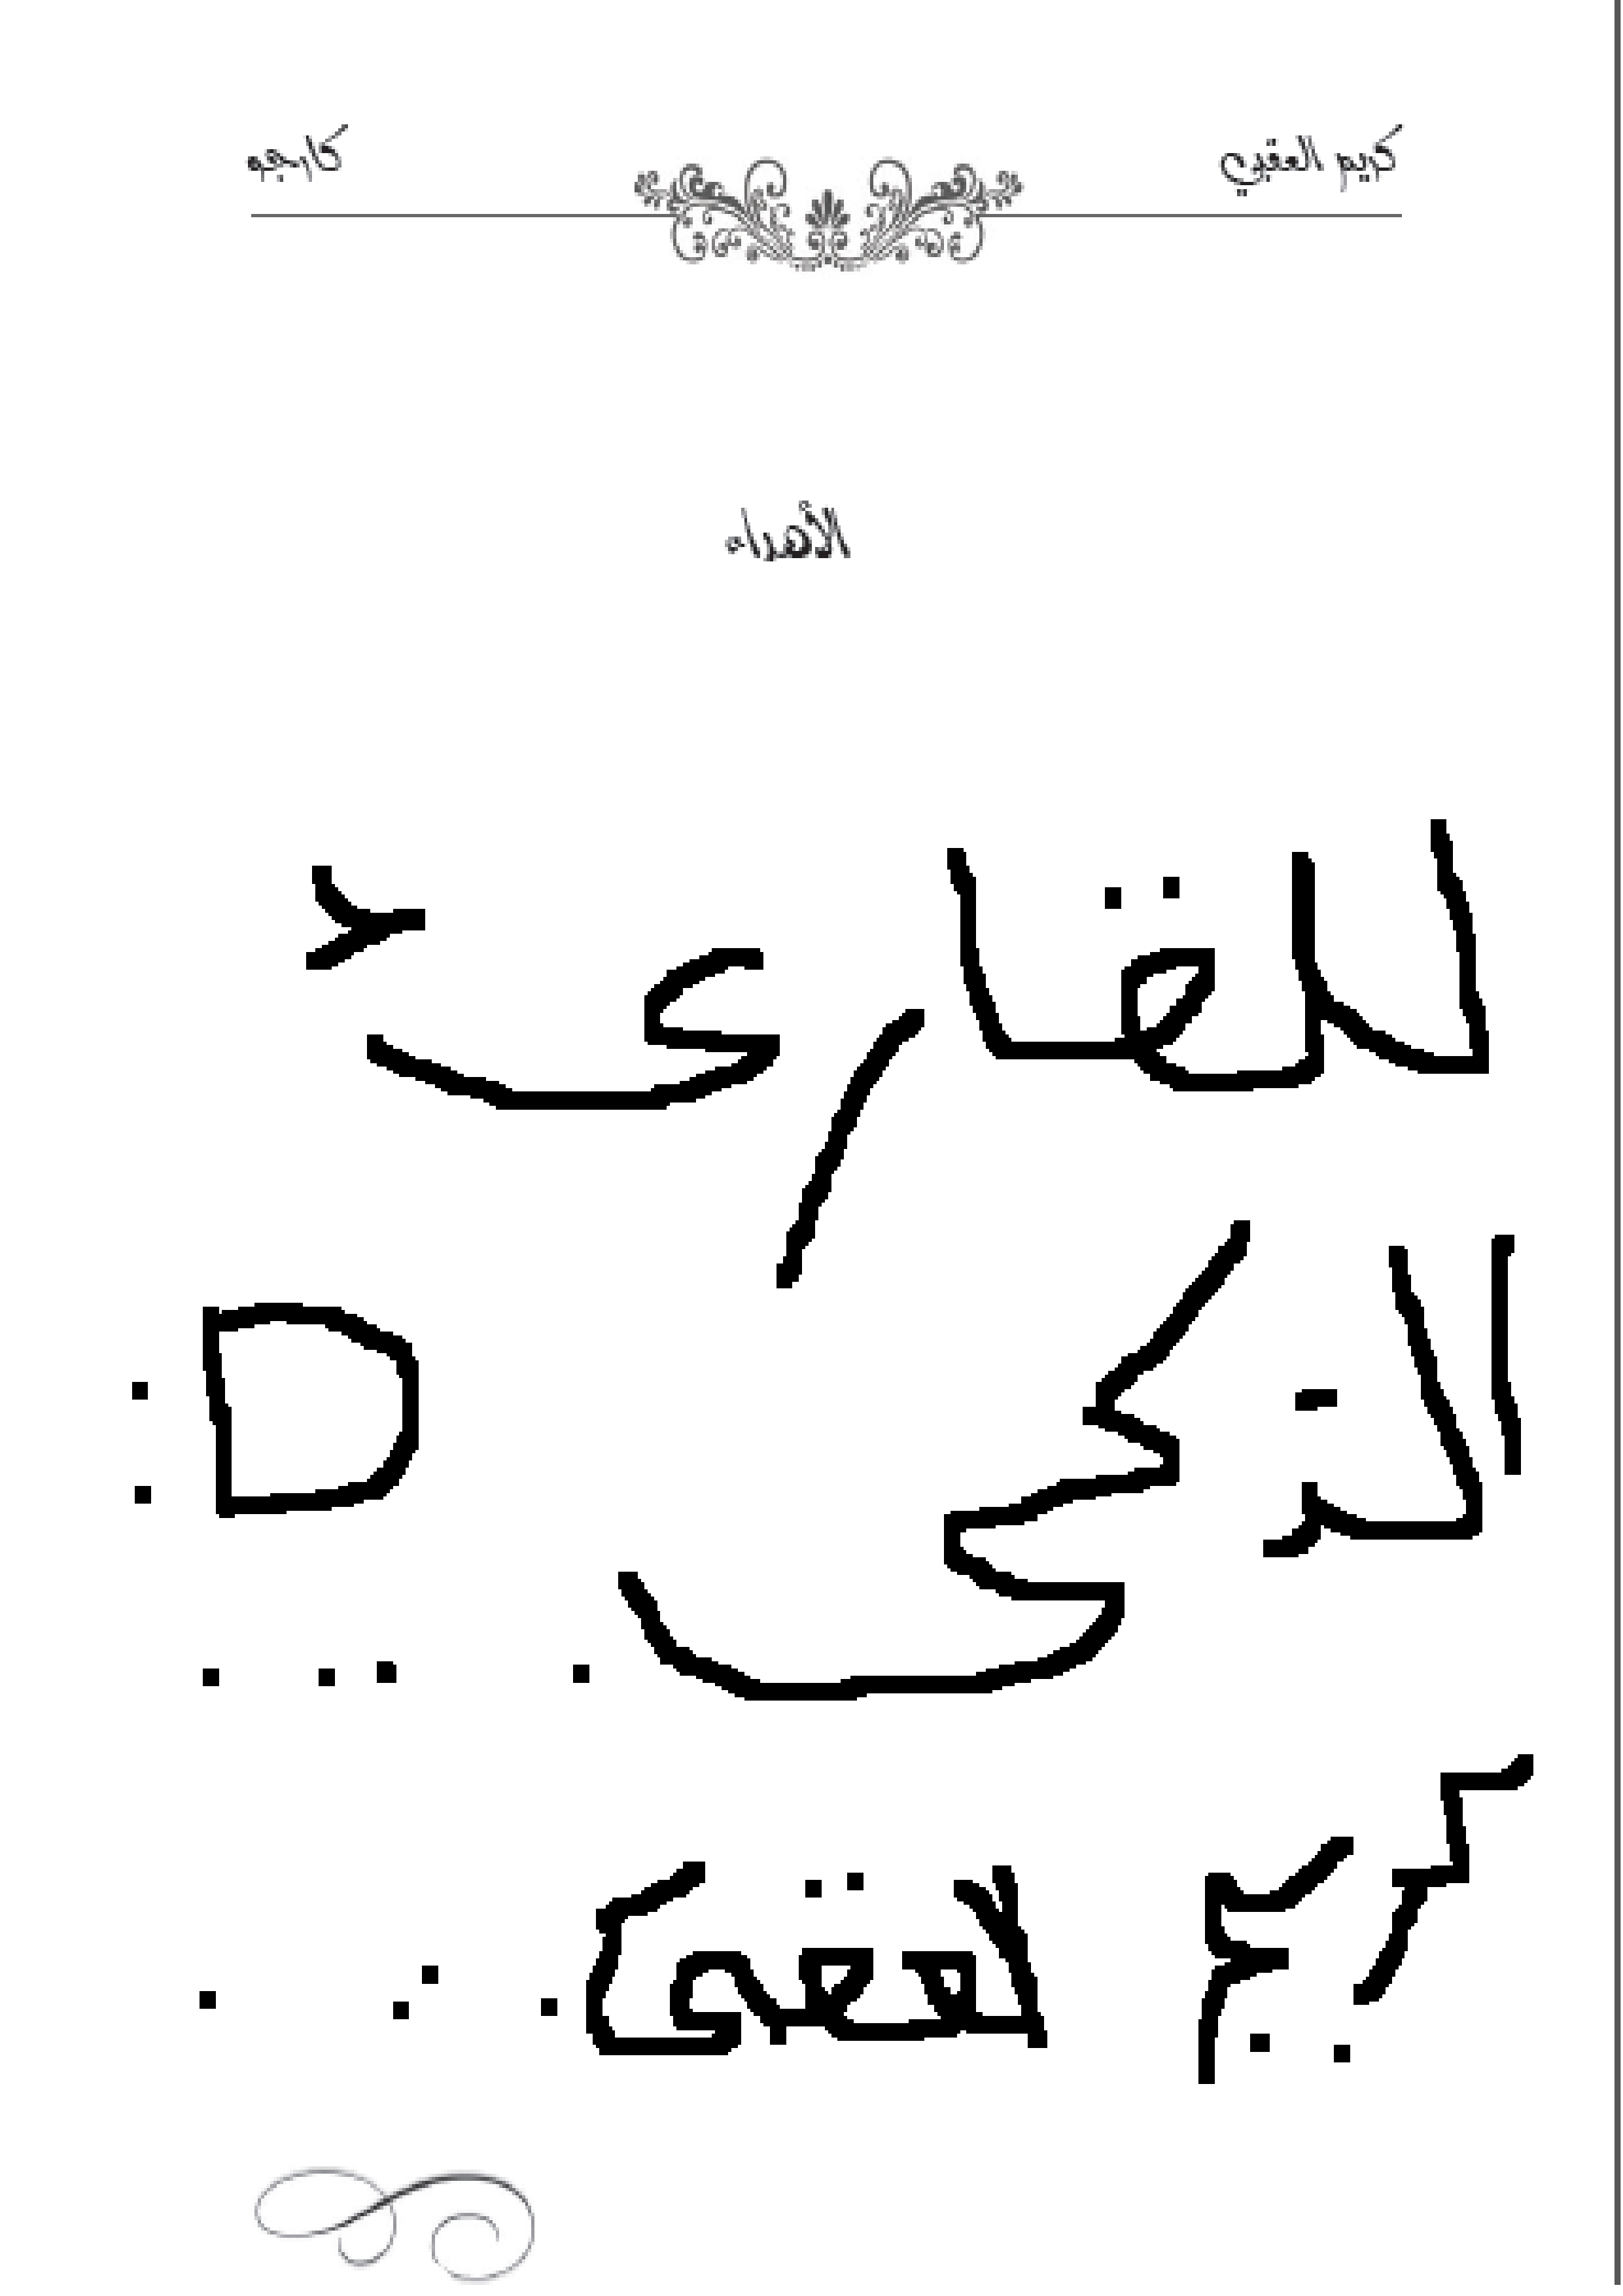 كريم العقبي كارجه
الأهداء
للقارئ
الذكي :D
....
كريم العقبي